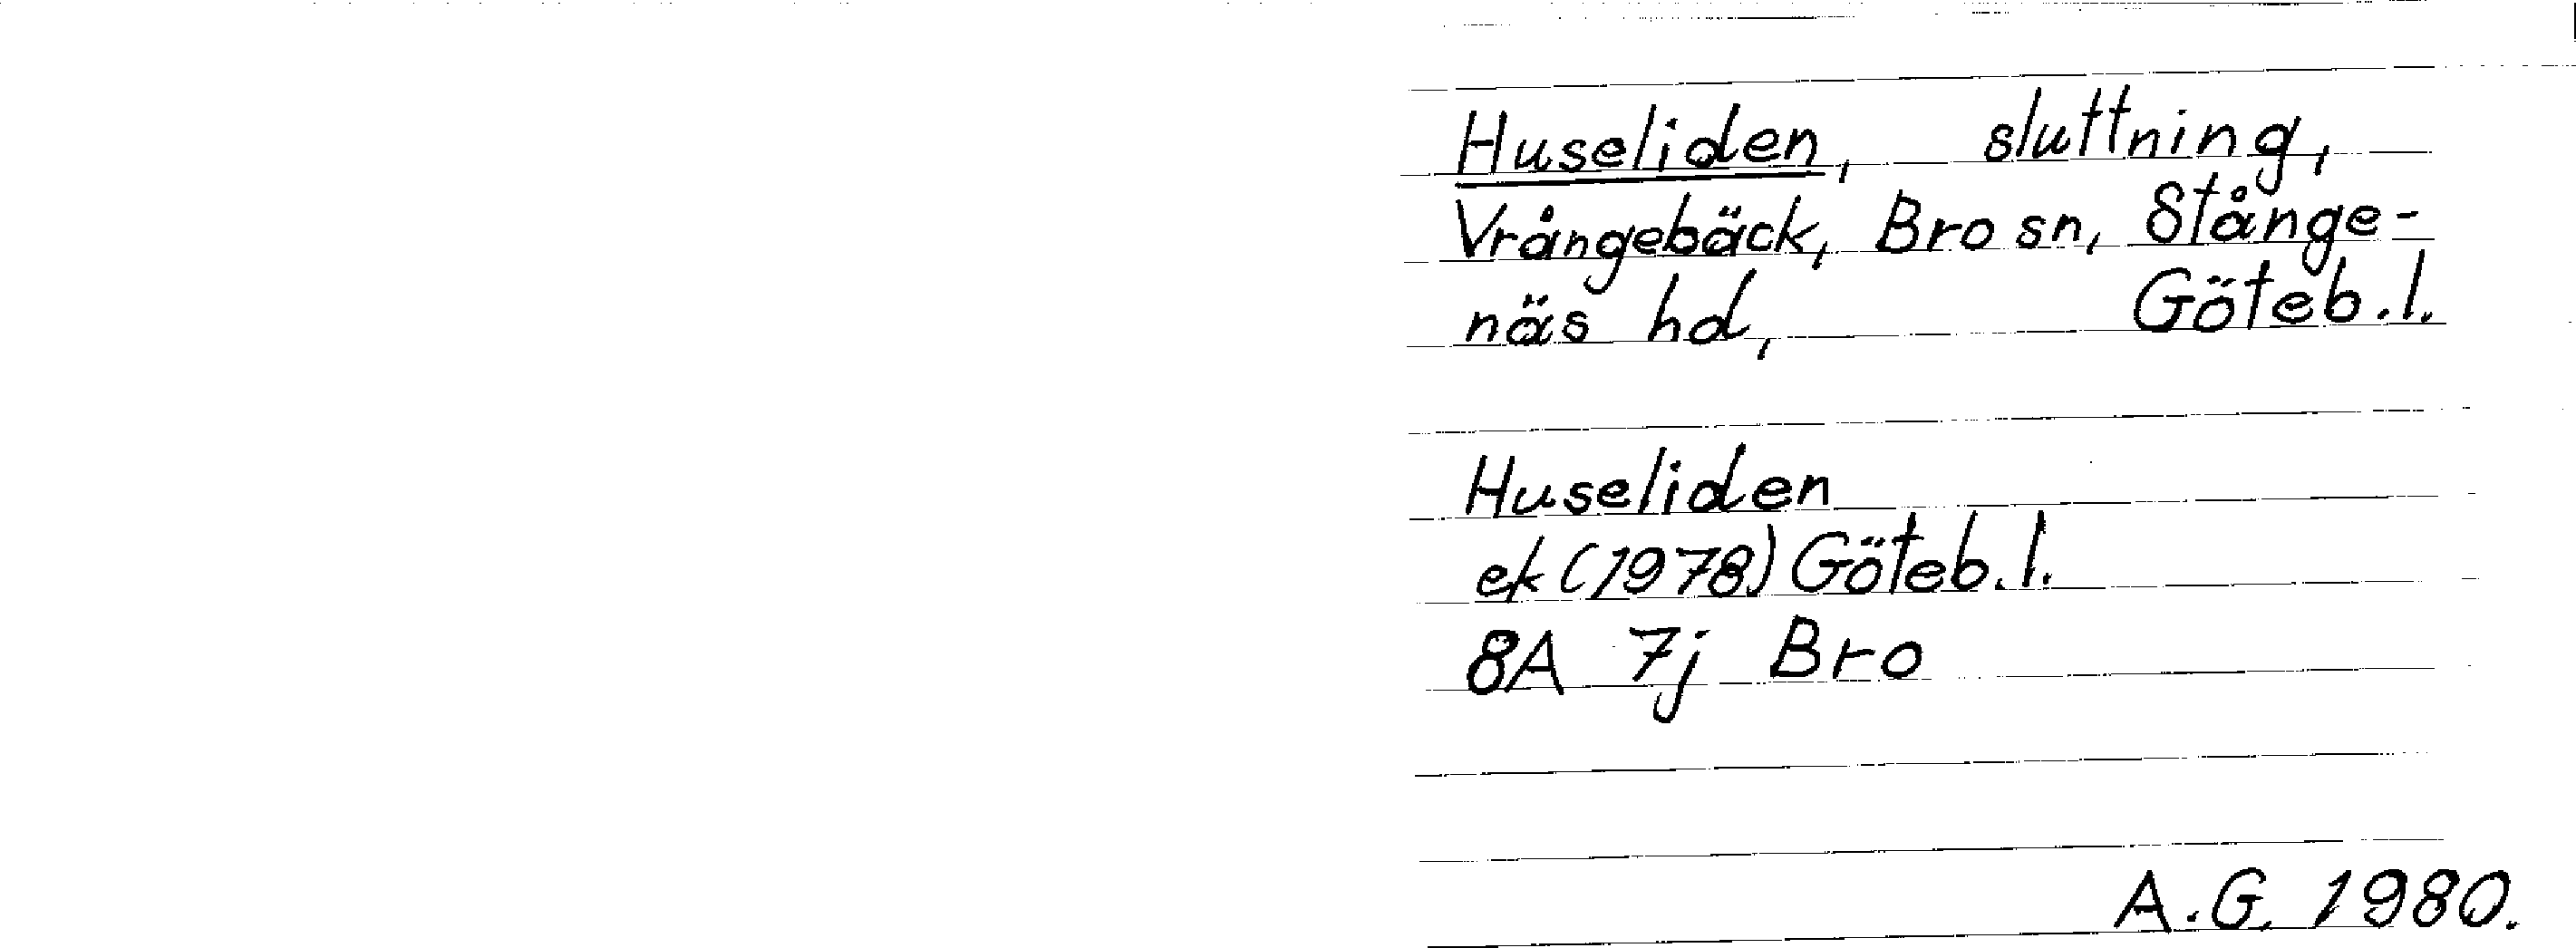 Huseliden, sluttning,
Vrångebäck, Bro sn, Stånge-
näs hd, Göteb.l.
Huseliden
ek (1978) Göteb.l.
8A 7j Bro
A.G. 1980.